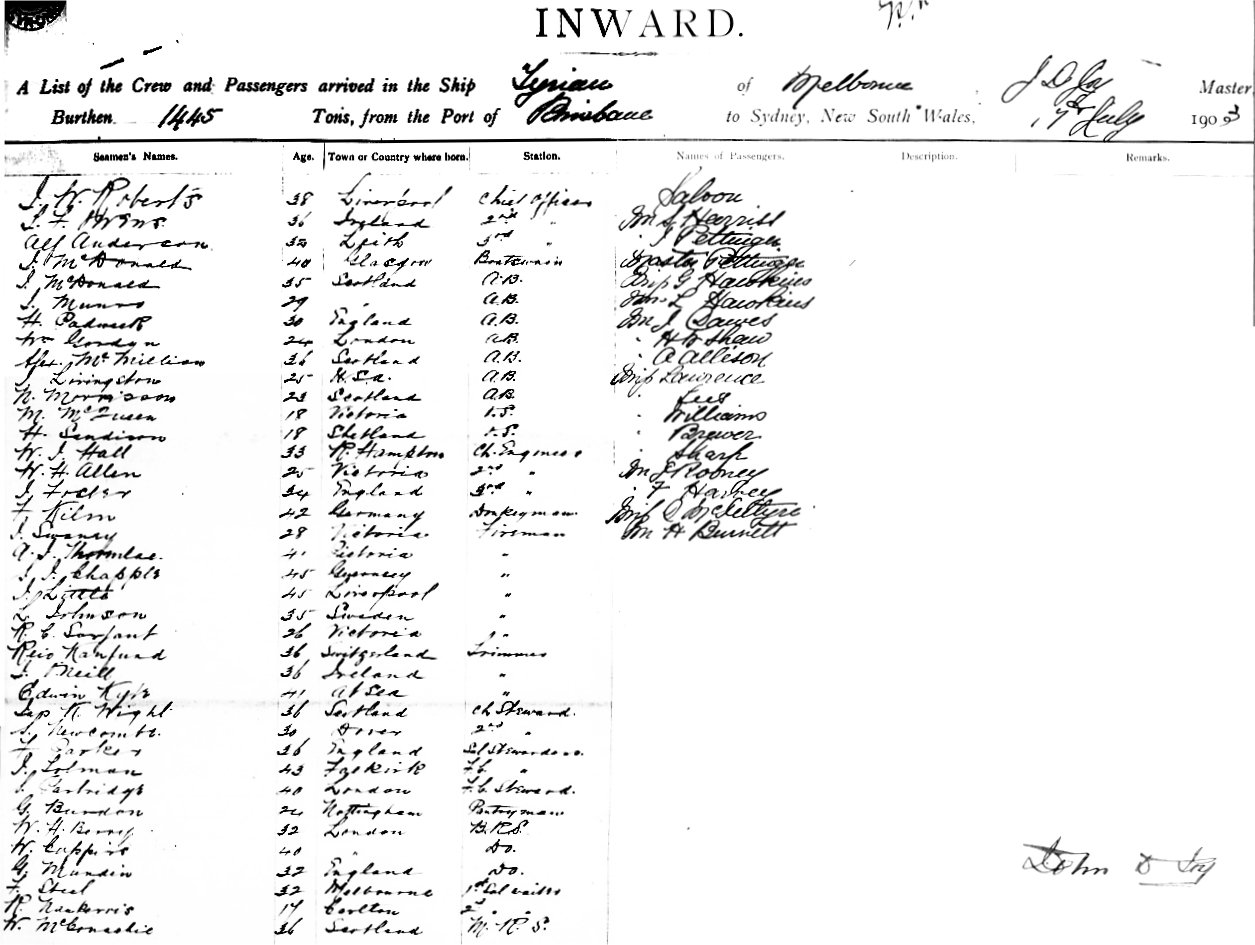 INWARD.
A List of the Crew and Passengers arrived in the Ship Tyrian of Melbourne J D Joy Master,
Burthen 1445 Tons, from the Port of Brisbane to Sydney, New South Wales, 17th July 1903
Seamen's Names. Age. Town or Country where born. Station. Names of Passengers. Description. Remarks.
J. W. Roberts 38 Liverpool Chief Officer Saloon
36 England 2nd " Mr S Harriss
Alf Anderson 32 Leith 3rd " " J Pettinger
J. McDonald 40 Glasgow Boatswain Master Pettinger
J. McDonald 35 Scotland A.B. Miss G Hawkins
J. Munro 29 " A.B. Mrs L Hawkins
H. Padwick 30 England A.B. Mr J. Dawes
Wm Gordyn 24 London A.B. " H W Shaw
Alex. McMillian 36 Scotland A.B. " A Allison
J Livingston 25 A.B. Miss Lawrence
N. Morrisson 23 Scotland A.B. " Lees
M. 18 Victoria O.S. " Williams
H. Sandison 18 Shetland O.S. " Brewer
W. J. Hall 33 R. Hampton Ch. Engineer " Sharp
W. H. Allen 25 Victoria 2nd " Mr J Rooney
J. Foster 34 England 3rd " " F Harvey
F. Kilm 42 Germany Donkeyman Miss C McIntyre
J. Swaney 28 Victoria Fireman Mr H Burnett
A. J. 41 Victoria "
J. J. Chapple 45 Guernsey "
J. Little 45 Liverpool "
L. Johnson 35 Sweden "
R. C. Sarjant 26 Victoria "
36 Switzerland Trimmer
J. O'Neill 36 Ireland "
Edwin Kyle 41 At Sea "
K. Wight 36 Scotland Ch Steward.
S. Newcombe. 30 Dover 2nd "
F. Parker 36 England Sal Stewardess.
J. Lolman 43 Falkirk F.C. "
J. Partridge 40 London F.C. Steward.
G. Burdon 24 Nottingham Pantryman
W. H. Berry 32 London B.R.S.
W. Coppins 40 " Do.
G. Mundin 32 England Do.
F. Steel 32 Melbourne 1st Sal waiter
R. Nankervis 17 Carlton 2nd "
W. McConachie 36 Scotland M.R.S.
John D Joy